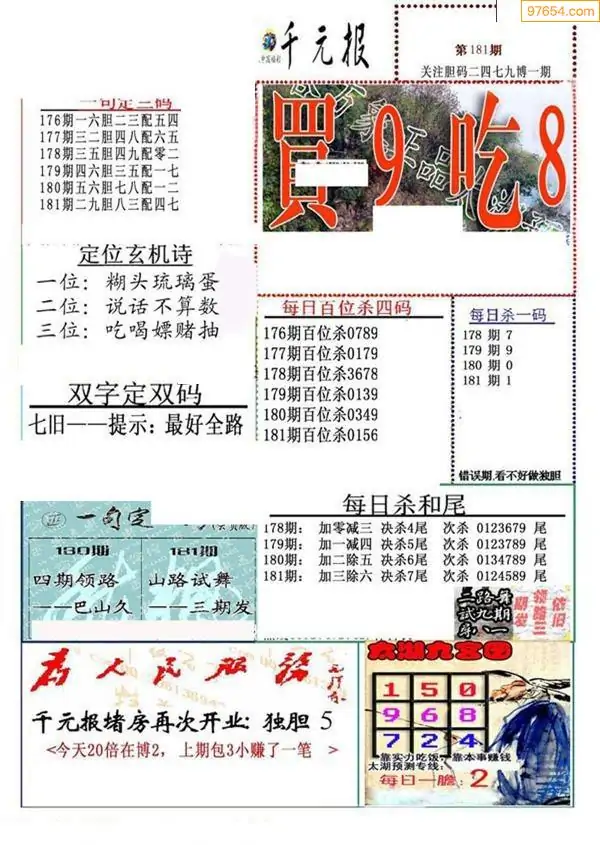 97654.com
千元报
第181期
关注胆码二四七九博一期
一句定三码
176期一六胆二三配五四
177期三二胆四八配六五
178期三五胆四九配零二
179期四六胆三五配一七
180期五六胆七八配一二
181期二九胆八三配四七
買9吃8
定位玄机诗
一位：糊头琉璃蛋
二位：说话不算数
三位：吃喝嫖赌抽
双字定双码
七旧——提示：最好全路
每日百位杀四码
176期百位杀0789
177期百位杀0179
178期百位杀3678
179期百位杀0139
180期百位杀0349
181期百位杀0156
每日杀一码
178 期 7
179 期 9
180 期 0
181 期 1
错误期,看不好做独胆
一句定
180期
四期领路
——巴山久
181期
山路试舞
——三期发
每日杀和尾
178期： 加零减三 决杀4尾 次杀 0123679 尾
179期： 加一减四 决杀5尾 次杀 0123789 尾
180期： 加二除五 决杀6尾 次杀 0134789 尾
181期： 加三除六 决杀7尾 次杀 0124589 尾
三路舞
试九期
身八一
为人民服务
千元报堵房再次开业：独胆 5
<今天20倍在博2，上期包3小赚了一笔 >
太湖九宫图
1 5 0
9 6 8
7 2 4
靠实力吃饭，靠本事赚钱
太湖预测专线：
每日一胆：2